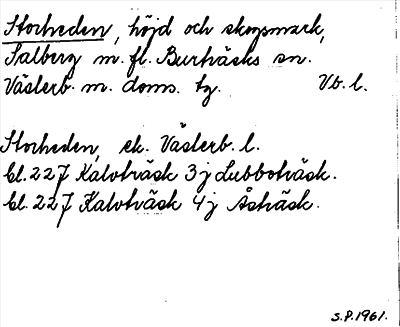 Storheden, höjd och skogsmark,
Salberg m. fl. Burträsks sn.
Västerb. m. doms. tg. Vb. l.
Storheden, ek. Västerb. l.
bl. 227 Kalvträsk 3j Lubboträsk.
bl. 227 Kalvträsk 4j Åsträsk.
S.P. 1961.